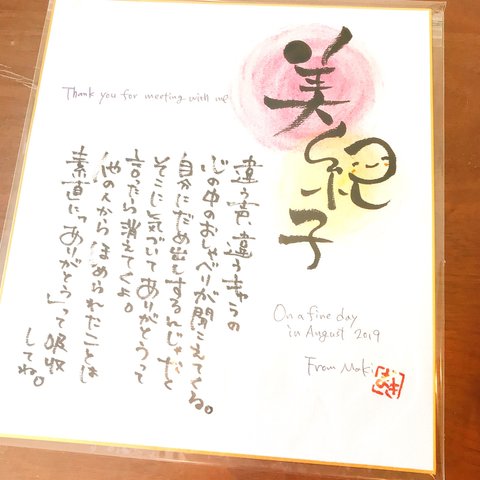 美紀子
Thank you for meeting with me
違う声、違うキャラの
心の中のおしゃべりが聞こえてくる。
自分にだめ出し
そこに気づいてありがとうって
言ったら消えてくよ。
他の人からほめられたことは
素直に「ありがとう」って吸収
してね。
On a fine day
in August 2019
From Maki